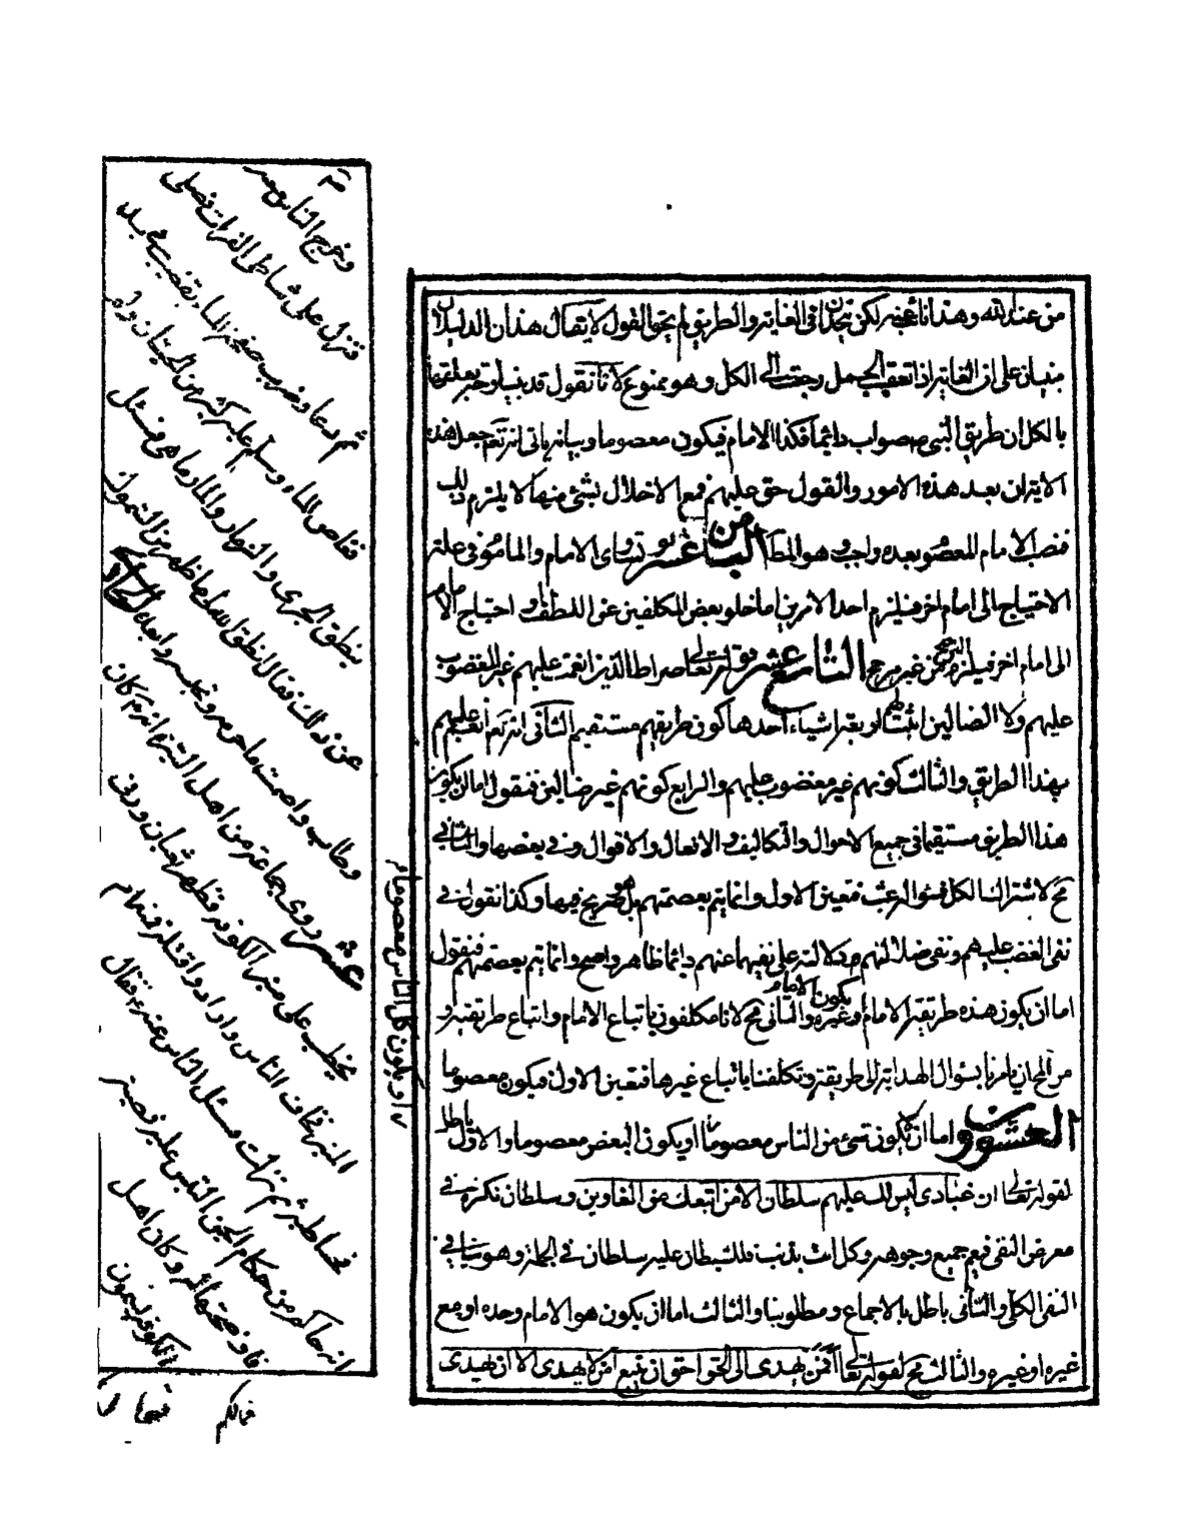 من عند الله وهذا نائب عنه لكن يتحدا في الغاية والطريق لم يحق القول لا يقال هذان الدليلان
مبنيان على ان الغاية اذا تعقب الجمل رجعت الى الكل وهو ممنوع لانا نقول قد بينا وتخبر بعلتها
بالكل ان طريق النبي ص صواب دائما فكذا الامام فيكون معصوما وبيانه ياتي انه تع جعل هذه
الاية ان بعد هذه الامور والقول حق عليهم فمع الاخلال بشئ منها لا يلزم ذلك
فنصب الامام المعصوم بعده واجب وهو المط الثامن عشر لو تساوى الامام والماموم في علة
الاحتياج الى امام اخر فيلزم احد الامرين اما خلو بعض المكلفين عن اللطف او احتياج الامام
الى امام اخر فيلزم الترجيح من غير مرجح التاسع عشر قوله تعالى صراط الذين انعمت عليهم غير المغضوب
عليهم ولا الضالين اثبت لطريقه اشياء احدها كون طريقهم مستقيم الثاني انه تع انعم عليهم
بهذا الطريق والثالث كونهم غير مغضوب عليهم والرابع كونهم غير ضالين فنقول اما ان يكون
هذا الطريق مستقيما في جميع الاحوال والتكاليف والافعال والاقوال وفي بعضها والثاني
مح لاشتراك الكل فسؤاله عبث فتعين الاول وانما يتم بعصمتهم فيها وكذا نقول في
نفى الغضب عليهم ونفى ضلالتهم ودلالته على نفيهما عنهم دائما ظاهر واضح وانما يتم بعصمتهم فنقول
اما ان يكون هذه طريقة الامام او غيره والثاني مح لانا مكلفون باتباع الامام واتباع طريقته و
من المحال يامرنا بسؤال الهداية الى طريقة وتكلفنا باتباع غيرها فتعين الاول فيكون معصوما
العشرون اما ان لا يكون شئ من الناس معصوما او يكون البعض معصوما والاول باطل
لقوله تعالى ان عبادى ليس لك عليهم سلطان الا من اتبعك من الغاوين وسلطان نكرة في
معرض النفى فيعم جميع وجوهه وكل انت بذنب فللشيطان عليه سلطان في الجملة وهو ينافي
النفى الكلي والثاني باطل بالاجماع ومطلوبنا والثالث اما ان يكون هو الامام وحده او مع
غيره او غيره والثالث مح لقوله تعالى افمن يهدى الى الحق احق ان يتبع امن لا يهدى الا ان يهدى
او يكون كل الناس معصوما
وخرج الناس معه
فنزل على شاطى الفرات فصلى
ثم دعا وضرب صفحة الماء بقضيب في يده
فغاص الماء وسلم عليه كثير من الحيتان ولم
ينطق الجرى والزمار والمارماهى فسئل
عن ذلك فقال انطق الله لى ما طهر من السموك
وطاب واصمت ما حرم ونجس وابعده
عشر روى جماعة من اهل السير انه كان
يخطب على منبر الكوفة فظهر ثعبان ورقى
المنبر فخاف الناس وارادوا قتله فمنعهم
فخاطبه ثم نزلت فسئل الناس عنه فقال
انه حاكم من حكام الجن التبس عليه قصية
فاوضحتها له وكان اهل
الكوفة يسمون
فمالكم